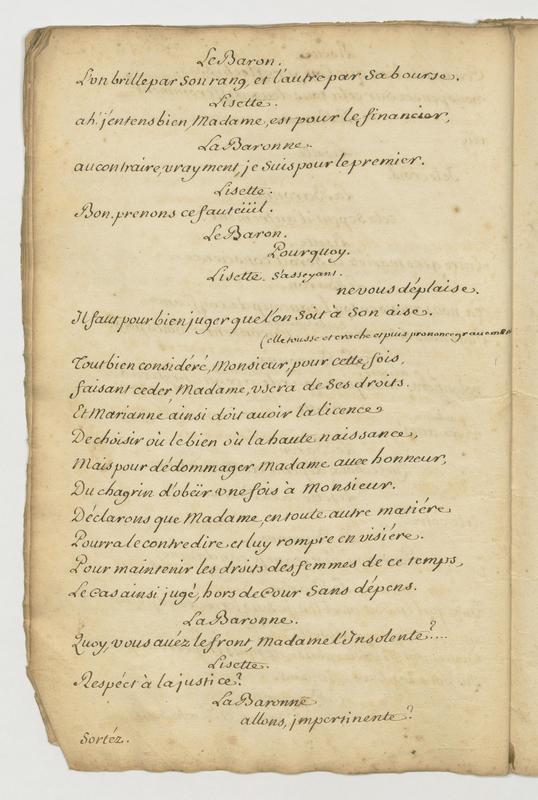 Le Baron.
L'un brille par son rang, et l'autre par sa bourse.
Lisette.
ah! j'entens bien, Madame, est pour le financier,
La Baronne.
au contraire, vrayment, je suis pour le premier.
Lisette.
Bon. prenons ce fauteüil.
Le Baron.
Pourquoy.
Lisette. s'asseyant.
ne vous déplaise.
Il faut pour bien juger que l'on soit à son aise.
(elle tousse et crache et puis prononce gravement
Tout bien considéré, Monsieur, pour cette fois,
faisant ceder Madame, usera de ses droits.
Et Marianne ainsi doit avoir la licence
De choisir où le bien où la haute naissance,
Mais pour dédommager Madame avec honneur,
Du chagrin d'obëir une fois à Monsieur.
Déclarons que Madame, en toute autre matiére
Pourra le contredire et luy rompre en visiére.
Pour maintenir les droits des femmes de ce temps,
Le cas ainsi jugé, hors de Cour sans dépens.
La Baronne.
Quoy, vous avéz le front, Madame l'Insolente?....
Lisette.
Respéct à la justice?
La Baronne
allons, impertinente?
Sortéz.